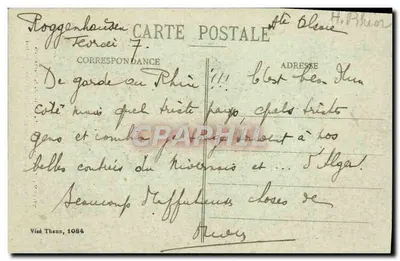 Roggenhausen
CARTE POSTALE
Hte Alsace
H. Rhin
7.
CORRESPONDANCE
ADRESSE
De garde au Rhin !!! C'est bien d'un
côté mais quel triste pays, quels tristes
gens et souvent à nos
belles contrées du Nivernais et ... d'Alger
Beaucoup d'affectueuses choses de
CPARAMA
Visé Thann, 1084